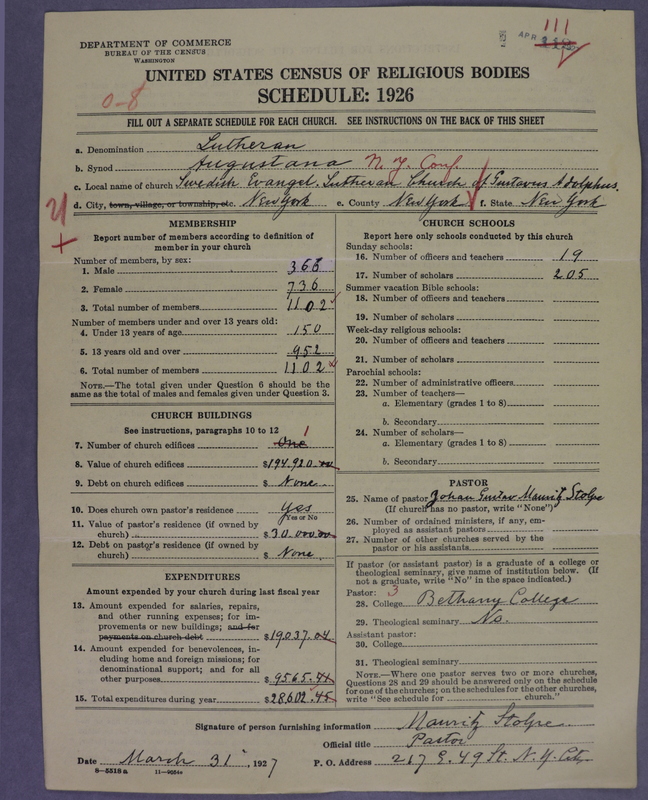 DEPARTMENT OF COMMERCE
BUREAU OF THE CENSUS
WASHINGTON
APR
111
UNITED STATES CENSUS OF RELIGIOUS BODIES
SCHEDULE: 1926
0-8
FILL OUT A SEPARATE SCHEDULE FOR EACH CHURCH. SEE INSTRUCTIONS ON THE BACK OF THIS SHEET
a. Denomination Lutheran
b. Synod Augustana N.Y. Conf
c. Local name of church Swedish Evangel. Lutheran Church of Gustavus Adolphus.
d. City, town, village, or township, etc. New York e. County New York f. State New York
MEMBERSHIP
Report number of members according to definition of
member in your church
Number of members, by sex:
1. Male 366
2. Female 736
3. Total number of members 1102
Number of members under and over 13 years old:
4. Under 13 years of age 150
5. 13 years old and over 952
6. Total number of members 1102
NOTE.—The total given under Question 6 should be the
same as the total of males and females given under Question 3.
CHURCH BUILDINGS
See instructions, paragraphs 10 to 12
7. Number of church edifices One 1
8. Value of church edifices $194.920.00
9. Debt on church edifices $ None.
10. Does church own pastor's residence Yes
Yes or No
11. Value of pastor's residence (if owned by
church) $30.000.00
12. Debt on pastor's residence (if owned by
church) $ None.
EXPENDITURES
Amount expended by your church during last fiscal year
13. Amount expended for salaries, repairs,
and other running expenses; for im-
provements or new buildings; and for
payments on church debt $19037.04
14. Amount expended for benevolences, in-
cluding home and foreign missions; for
denominational support; and for all
other purposes $9565.41
15. Total expenditures during year $28602.45
CHURCH SCHOOLS
Report here only schools conducted by this church
Sunday schools:
16. Number of officers and teachers 19
17. Number of scholars 205
Summer vacation Bible schools:
18. Number of officers and teachers
19. Number of scholars
Week-day religious schools:
20. Number of officers and teachers
21. Number of scholars
Parochial schools:
22. Number of administrative officers
23. Number of teachers—
a. Elementary (grades 1 to 8)
b. Secondary
24. Number of scholars—
a. Elementary (grades 1 to 8)
b. Secondary
PASTOR
25. Name of pastor Johan Gustav Mauritz Stolpe
(If church has no pastor, write "None")
26. Number of ordained ministers, if any, em-
ployed as assistant pastors
27. Number of other churches served by the
pastor or his assistants
If pastor (or assistant pastor) is a graduate of a college or
theological seminary, give name of institution below. (If
not a graduate, write "No" in the space indicated.)
Pastor: 3
28. College Bethany College
29. Theological seminary No.
Assistant pastor:
30. College
31. Theological seminary
NOTE.—Where one pastor serves two or more churches,
Questions 28 and 29 should be answered only on the schedule
for one of the churches; on the schedules for the other churches,
write "See schedule for church."
Signature of person furnishing information Mauritz Stolpe
Official title Pastor
Date March 31, 1927 P. O. Address 217 E. 49 St. N.Y. City
8-5518a 11-9064